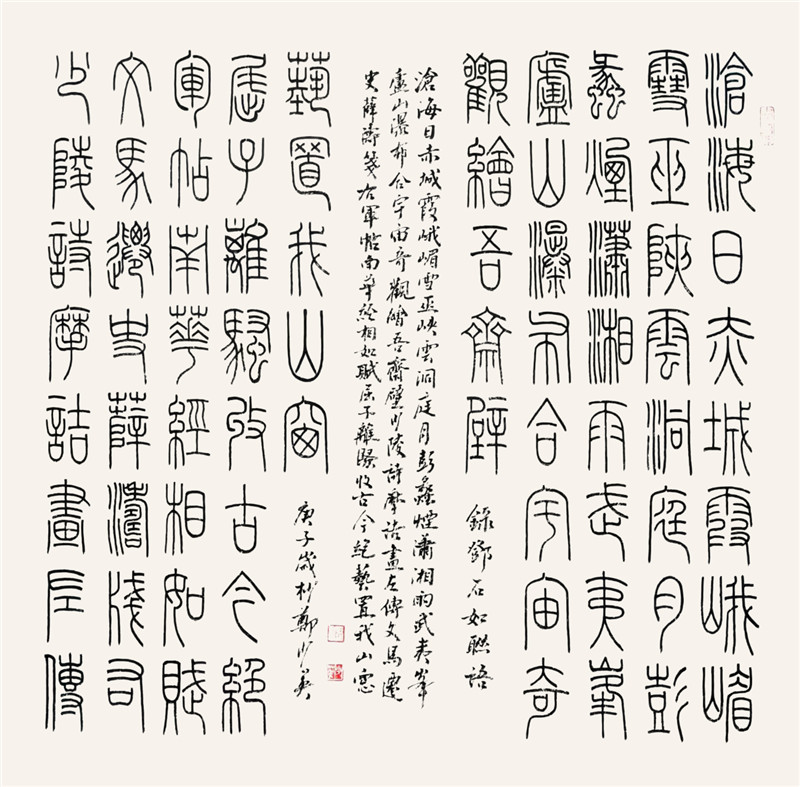 滄海日赤城霞峨嵋
雪巫峽雲洞庭月彭
蠡煙瀟湘雨武夷峯
廬山瀑布合宇宙奇
觀繪吾齋壁
錄鄧石如聯語
少陵詩摩詰畫左傳
文馬遷史薛濤箋右
軍帖南華經相如賦
屈子離騷收古今絕
藝置我山窗
滄海日赤城霞峨嵋雪巫峽雲洞庭月彭蠡煙瀟湘雨武夷峯
廬山瀑布合宇宙奇觀繪吾齋壁少陵詩摩詰畫左傳文馬遷
史薛濤箋右軍帖南華經相如賦屈子離騷收古今絕藝置我山窗
庚子歲杪鄭少英